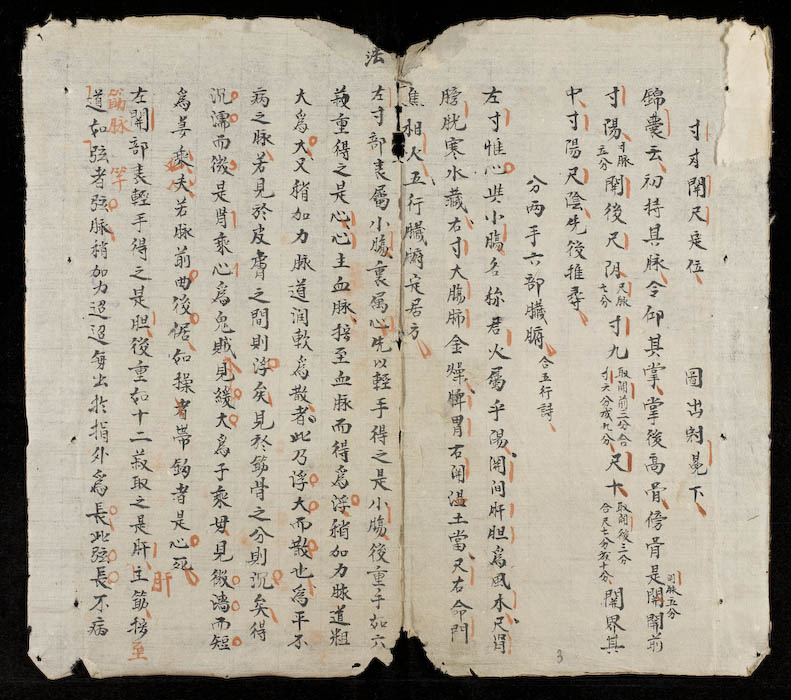 寸寸關尺定位　圖出對冕下
錦囊云初持其脉令仰其掌掌後高骨傍骨是關關前
關脉五分
寸陽寸脉五分關後尺阴尺脉七分寸九取關前三分合寸六分成九分尺十取關後三分合尺七分成十分關界其
中寸陽尺陰先後推尋
分两手六部臟腑合五行詩
左寸惟心與小膓名称君火屬乎陽関间肝胆為風木尺腎
膀胱寒水藏右寸大膓肺金燥脾胃右関温土當尺右命門
焦相火五行臟腑定居方
左寸部表屬小膓裏属心先以輕手得之是小膓後重手如六
菽重得之是心心主血脉按至血脉而得為浮稍加力脉道粗
大為大又稍加力脉道润軟為散者此乃浮大而散也為平不
病之脉若見於皮膚之間則浮矣見於筋骨之分則沉矣得
沉濡而微是腎乘心為鬼賊見緩大為子乘母見微濇而短
為妻乘夫若脉前曲後倨如操者帶鈎者是心死
左關部表輕手得之是胆後重如十二菽取之是肝主筋按至
肝
筋脉
道如弦者弦脉稍加力迢迢每出於指外為長此弦長不病
法
3